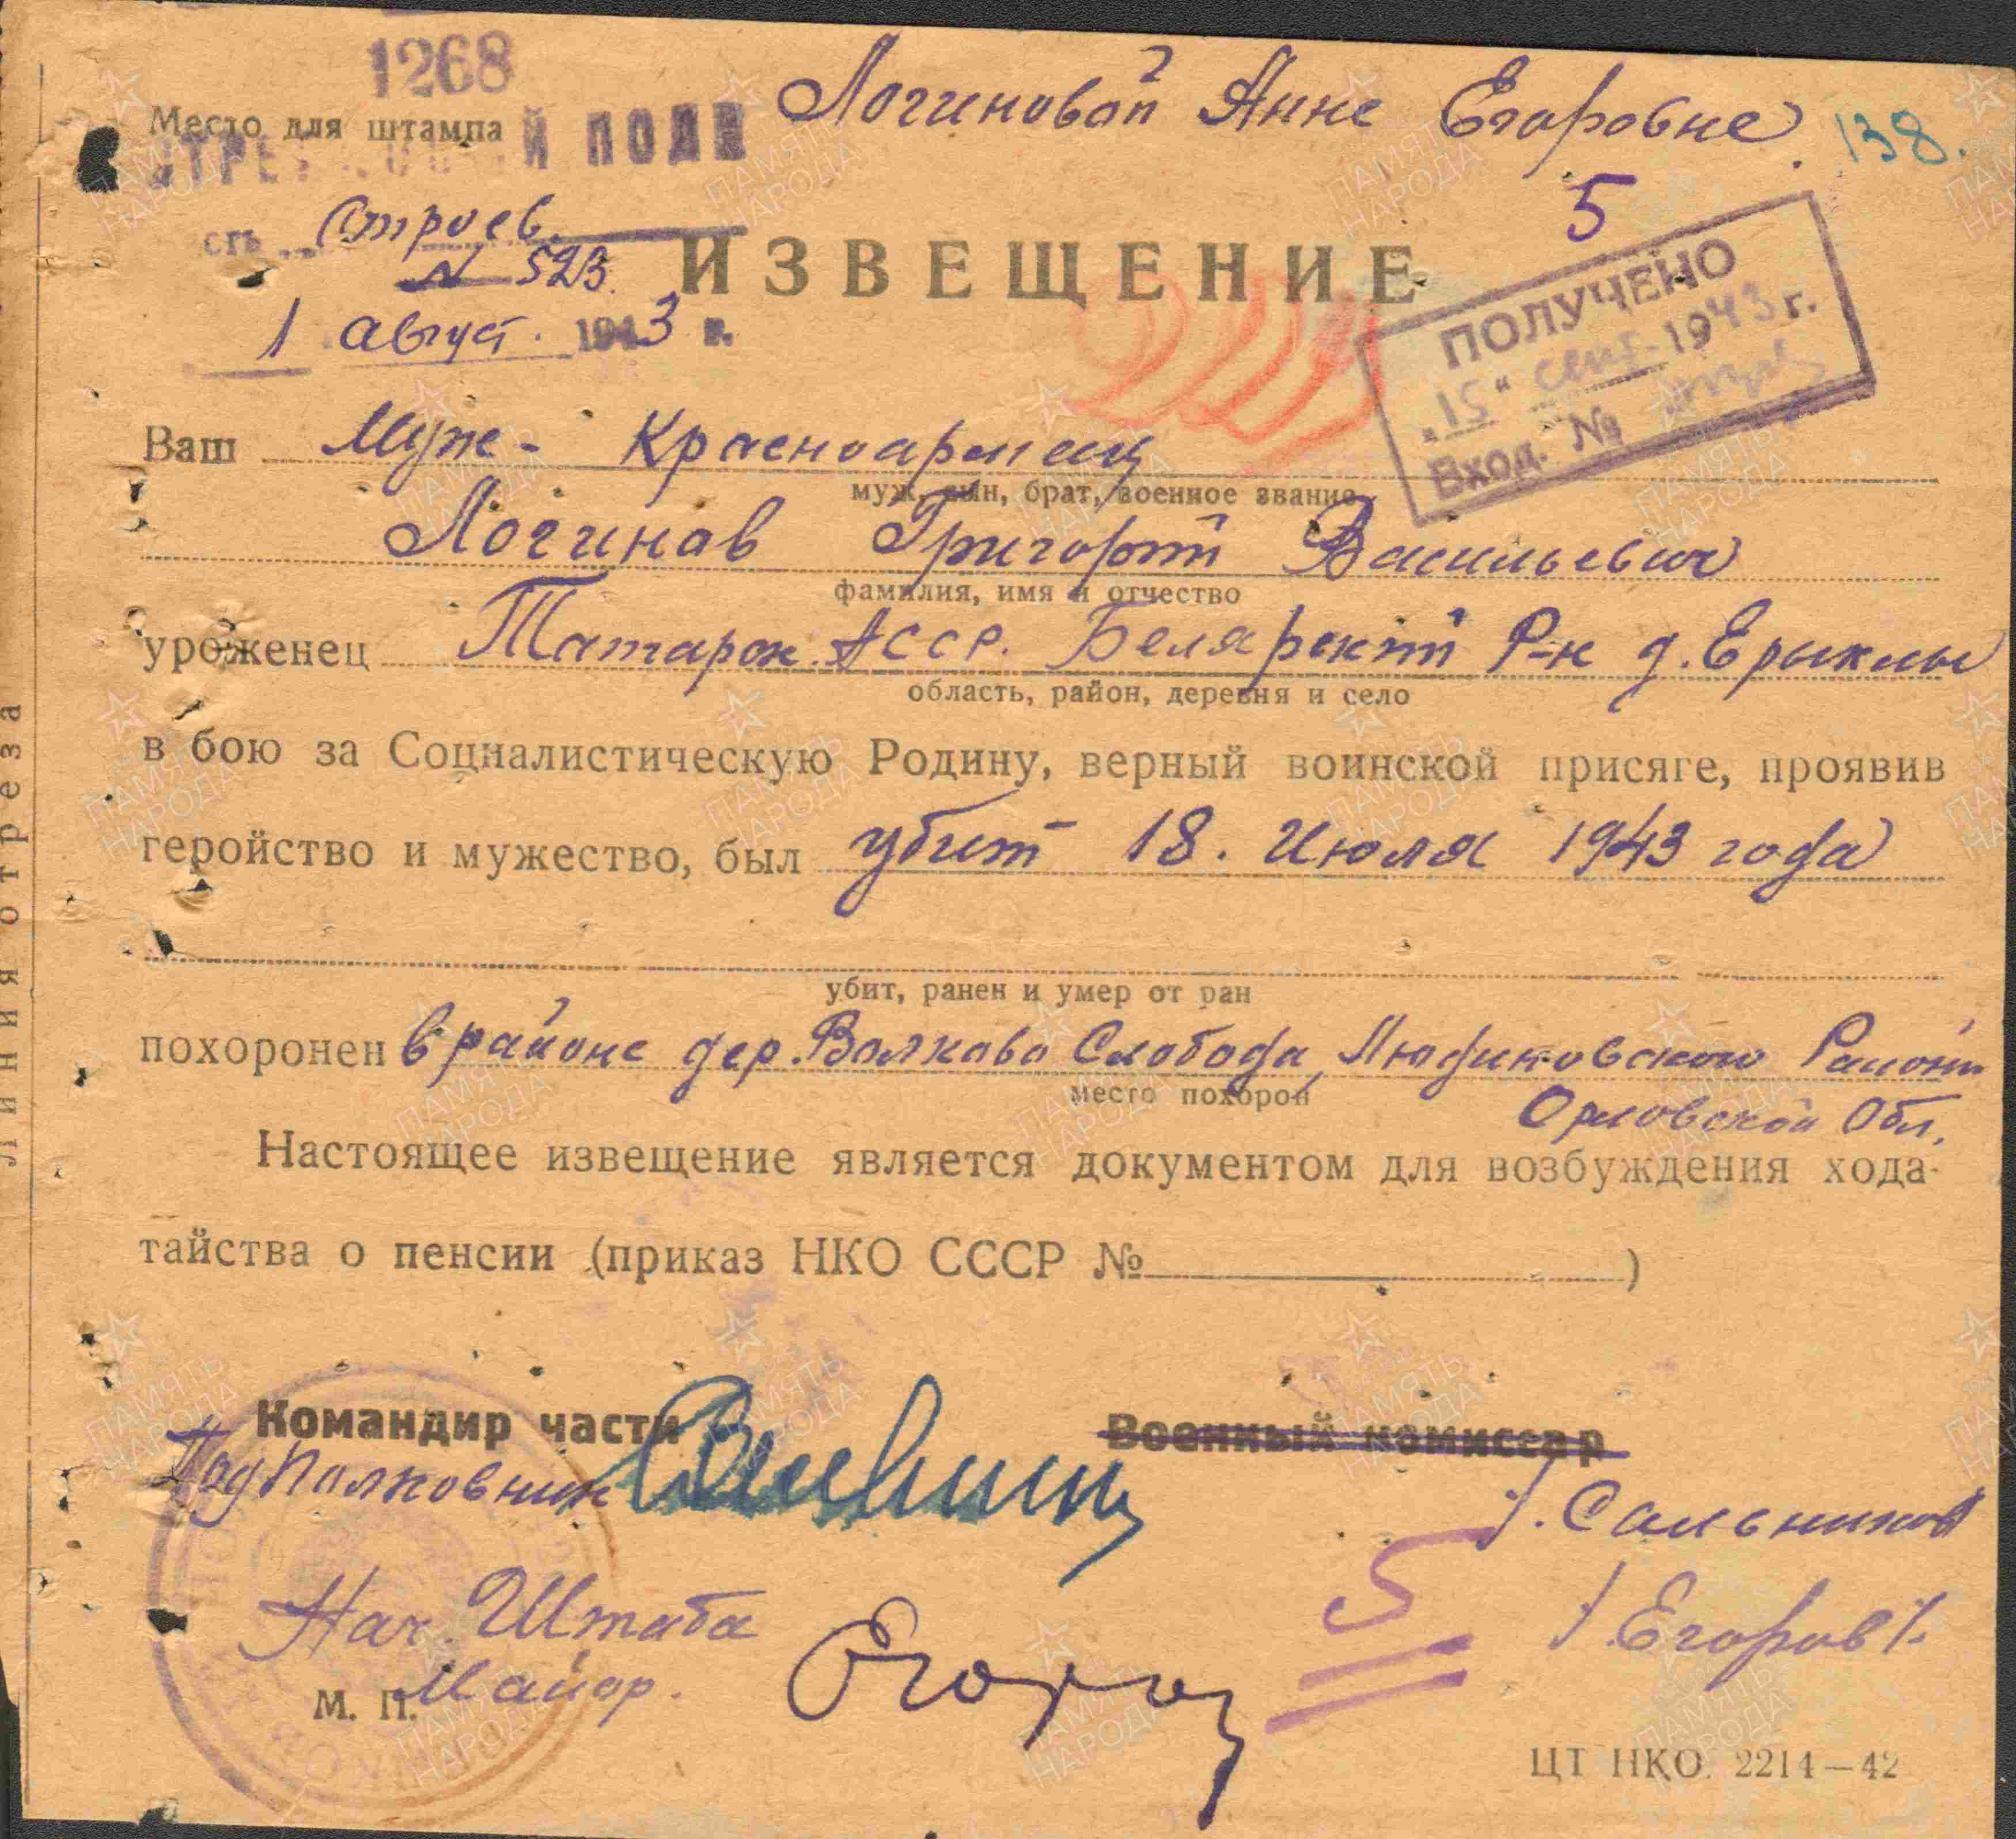 1268
Логиновой Анне Егоровне
138.
Место для штампа
Й ПОЛК
5
сть Строев.
ИЗВЕЩЕНИЕ
N 523.
1 август. 1943 г.
ПОЛУЧЕНО
"15" сент. 1943 г.
Вход. №
Ваш Муж- Красноармеец
муж, сын, брат, военное звание
Логинав Григорий Васильевич
фамилия, имя и отчество
уроженец Татарск. АССР. Белярский Р-н д. Ерыклы
область, район, деревня и село
в бою за Социалистическую Родину, верный воинской присяге, проявив
геройство и мужество, был убит 18. Июля 1943 года
убит, ранен и умер от ран
похоронен в районе дер. Волкава Слобода, Людиновского Района
место похорон
Орловской Обл.
Настоящее извещение является документом для возбуждения хода-
тайства о пенсии (приказ НКО СССР № )
Командир части
Военный комиссар
Подполковник
/. Сальников
Нач. Штаба
Майор.
Егоров
/.Егоров/.
5
М. П.
ЦТ НКО. 2214—42
Линия отреза
ПАМЯТЬ НАРОДА